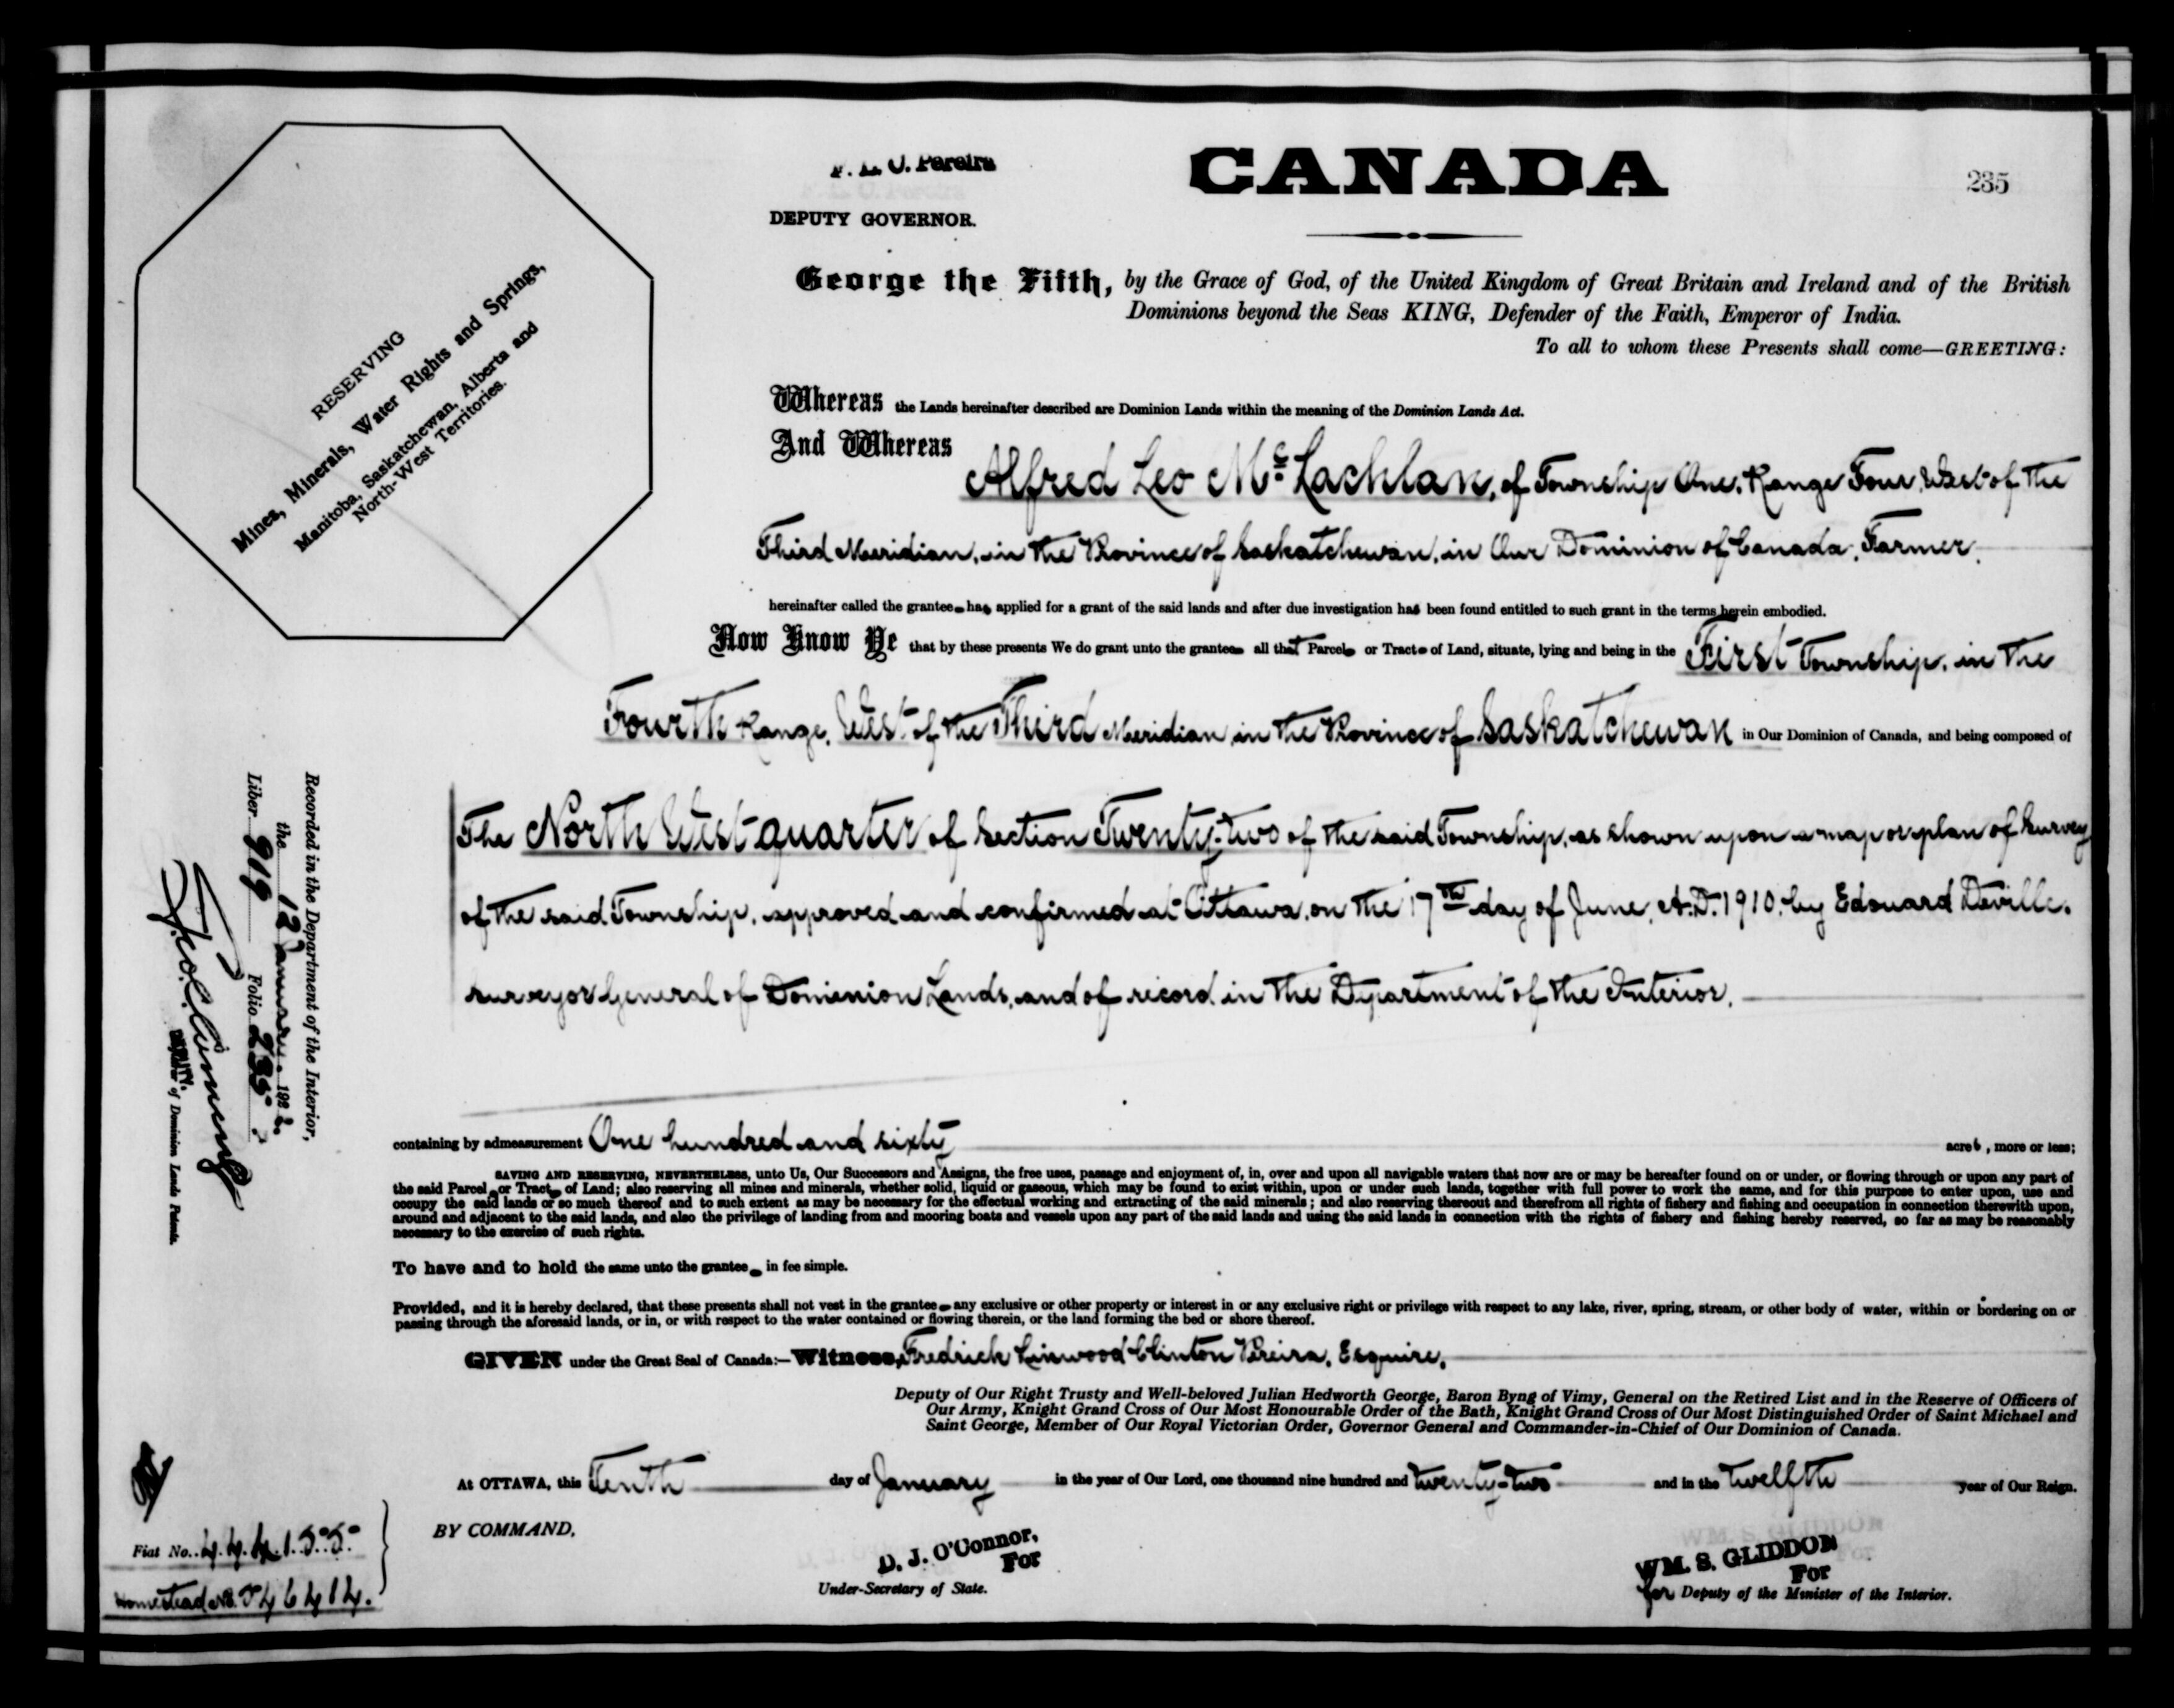 F. L. C. Pereira
DEPUTY GOVERNOR.
CANADA
235
George the Fifth, by the Grace of God, of the United Kingdom of Great Britain and Ireland and of the British
Dominions beyond the Seas KING, Defender of the Faith, Emperor of India.
To all to whom these Presents shall come—GREETING:
RESERVING
Mines, Minerals, Water Rights and Springs,
Manitoba, Saskatchewan, Alberta and
North-West Territories.
Whereas the Lands hereinafter described are Dominion Lands within the meaning of the Dominion Lands Act.
And Whereas Alfred Leo McLachlan, of Township One, Range Four, West of the
Third Meridian, in the Province of Saskatchewan, in Our Dominion of Canada, Farmer,
hereinafter called the grantee has applied for a grant of the said lands and after due investigation has been found entitled to such grant in the terms herein embodied.
Now Know Ye that by these presents We do grant unto the grantee all that Parcel or Tract of Land, situate, lying and being in the First Township, in the
Fourth Range, West of the Third Meridian in the Province of Saskatchewan in Our Dominion of Canada, and being composed of
The North West quarter of Section Twenty-two of the said Township, as shown upon a map or plan of survey
of the said Township, approved and confirmed at Ottawa, on the 17th day of June, A.D. 1910, by Edouard Deville,
surveyor General of Dominion Lands, and of record in the Department of the Interior,
containing by admeasurement One hundred and sixty acres, more or less;
SAVING AND RESERVING, NEVERTHELESS, unto Us, Our Successors and Assigns, the free uses, passage and enjoyment of, in, over and upon all navigable waters that now are or may be hereafter found on or under, or flowing through or upon any part of
the said Parcel or Tract of Land; also reserving all mines and minerals, whether solid, liquid or gaseous, which may be found to exist within, upon or under such lands, together with full power to work the same, and for this purpose to enter upon, use and
occupy the said lands or so much thereof and to such extent as may be necessary for the effectual working and extracting of the said minerals; and also reserving thereout and therefrom all rights of fishery and fishing and occupation in connection therewith upon,
around and adjacent to the said lands, and also the privilege of landing from and mooring boats and vessels upon any part of the said lands and using the said lands in connection with the rights of fishery and fishing hereby reserved, so far as may be reasonably
necessary to the exercise of such rights.
To have and to hold the same unto the grantee in fee simple.
Provided, and it is hereby declared, that these presents shall not vest in the grantee any exclusive or other property or interest in or any exclusive right or privilege with respect to any lake, river, spring, stream, or other body of water, within or bordering on or
passing through the aforesaid lands, or in, or with respect to the water contained or flowing therein, or the land forming the bed or shore thereof.
GIVEN under the Great Seal of Canada:—Witness, Fredrick Linwood Clinton Pereira, Esquire,
Deputy of Our Right Trusty and Well-beloved Julian Hedworth George, Baron Byng of Vimy, General on the Retired List and in the Reserve of Officers of
Our Army, Knight Grand Cross of Our Most Honourable Order of the Bath, Knight Grand Cross of Our Most Distinguished Order of Saint Michael and
Saint George, Member of Our Royal Victorian Order, Governor General and Commander-in-Chief of Our Dominion of Canada.
At OTTAWA, this Tenth day of January in the year of Our Lord, one thousand nine hundred and twenty-two and in the twelfth year of Our Reign.
BY COMMAND,
D. J. O'Connor,
For
Under-Secretary of State.
WM. S. GLIDDON
For
for Deputy of the Minister of the Interior.
Recorded in the Department of the Interior,
the 12 January. 1922.
Liber 919 Folio 235
DEPUTY
of Dominion Lands Patents.
Fiat No. 444155
Homestead No. 546414.